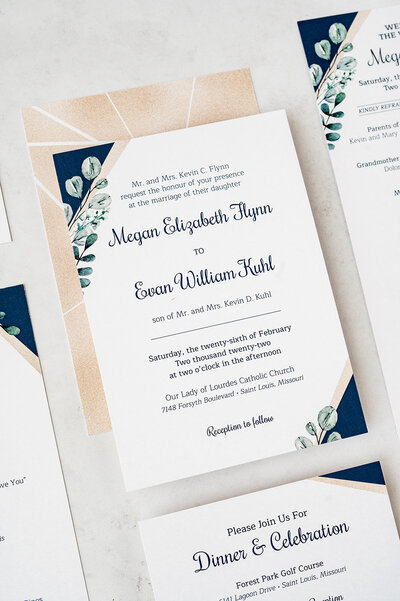 Mr. and Mrs. Kevin C. Flynn
request the honour of your presence
at the marriage of their daughter
Megan Elizabeth Flynn
TO
Evan William Kuhl
son of Mr. and Mrs. Kevin D. Kuhl
Saturday, the twenty-sixth of February
Two thousand twenty-two
at two o'clock in the afternoon
Our Lady of Lourdes Catholic Church
7148 Forsyth Boulevard • Saint Louis, Missouri
Reception to follow
THE
Megan
Saturday, the
Two
KINDLY REFRA
Parents of
Kevin and Mary
Grandmother
Please Join Us For
Dinner & Celebration
Forest Park Golf Course
Lagoon Drive • Saint Louis, Missouri
ve You"